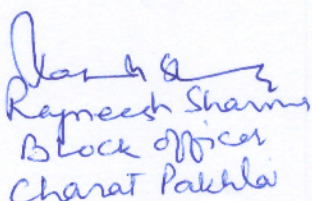 Rajneesh Sharma
Block officer
Charat Pakhla